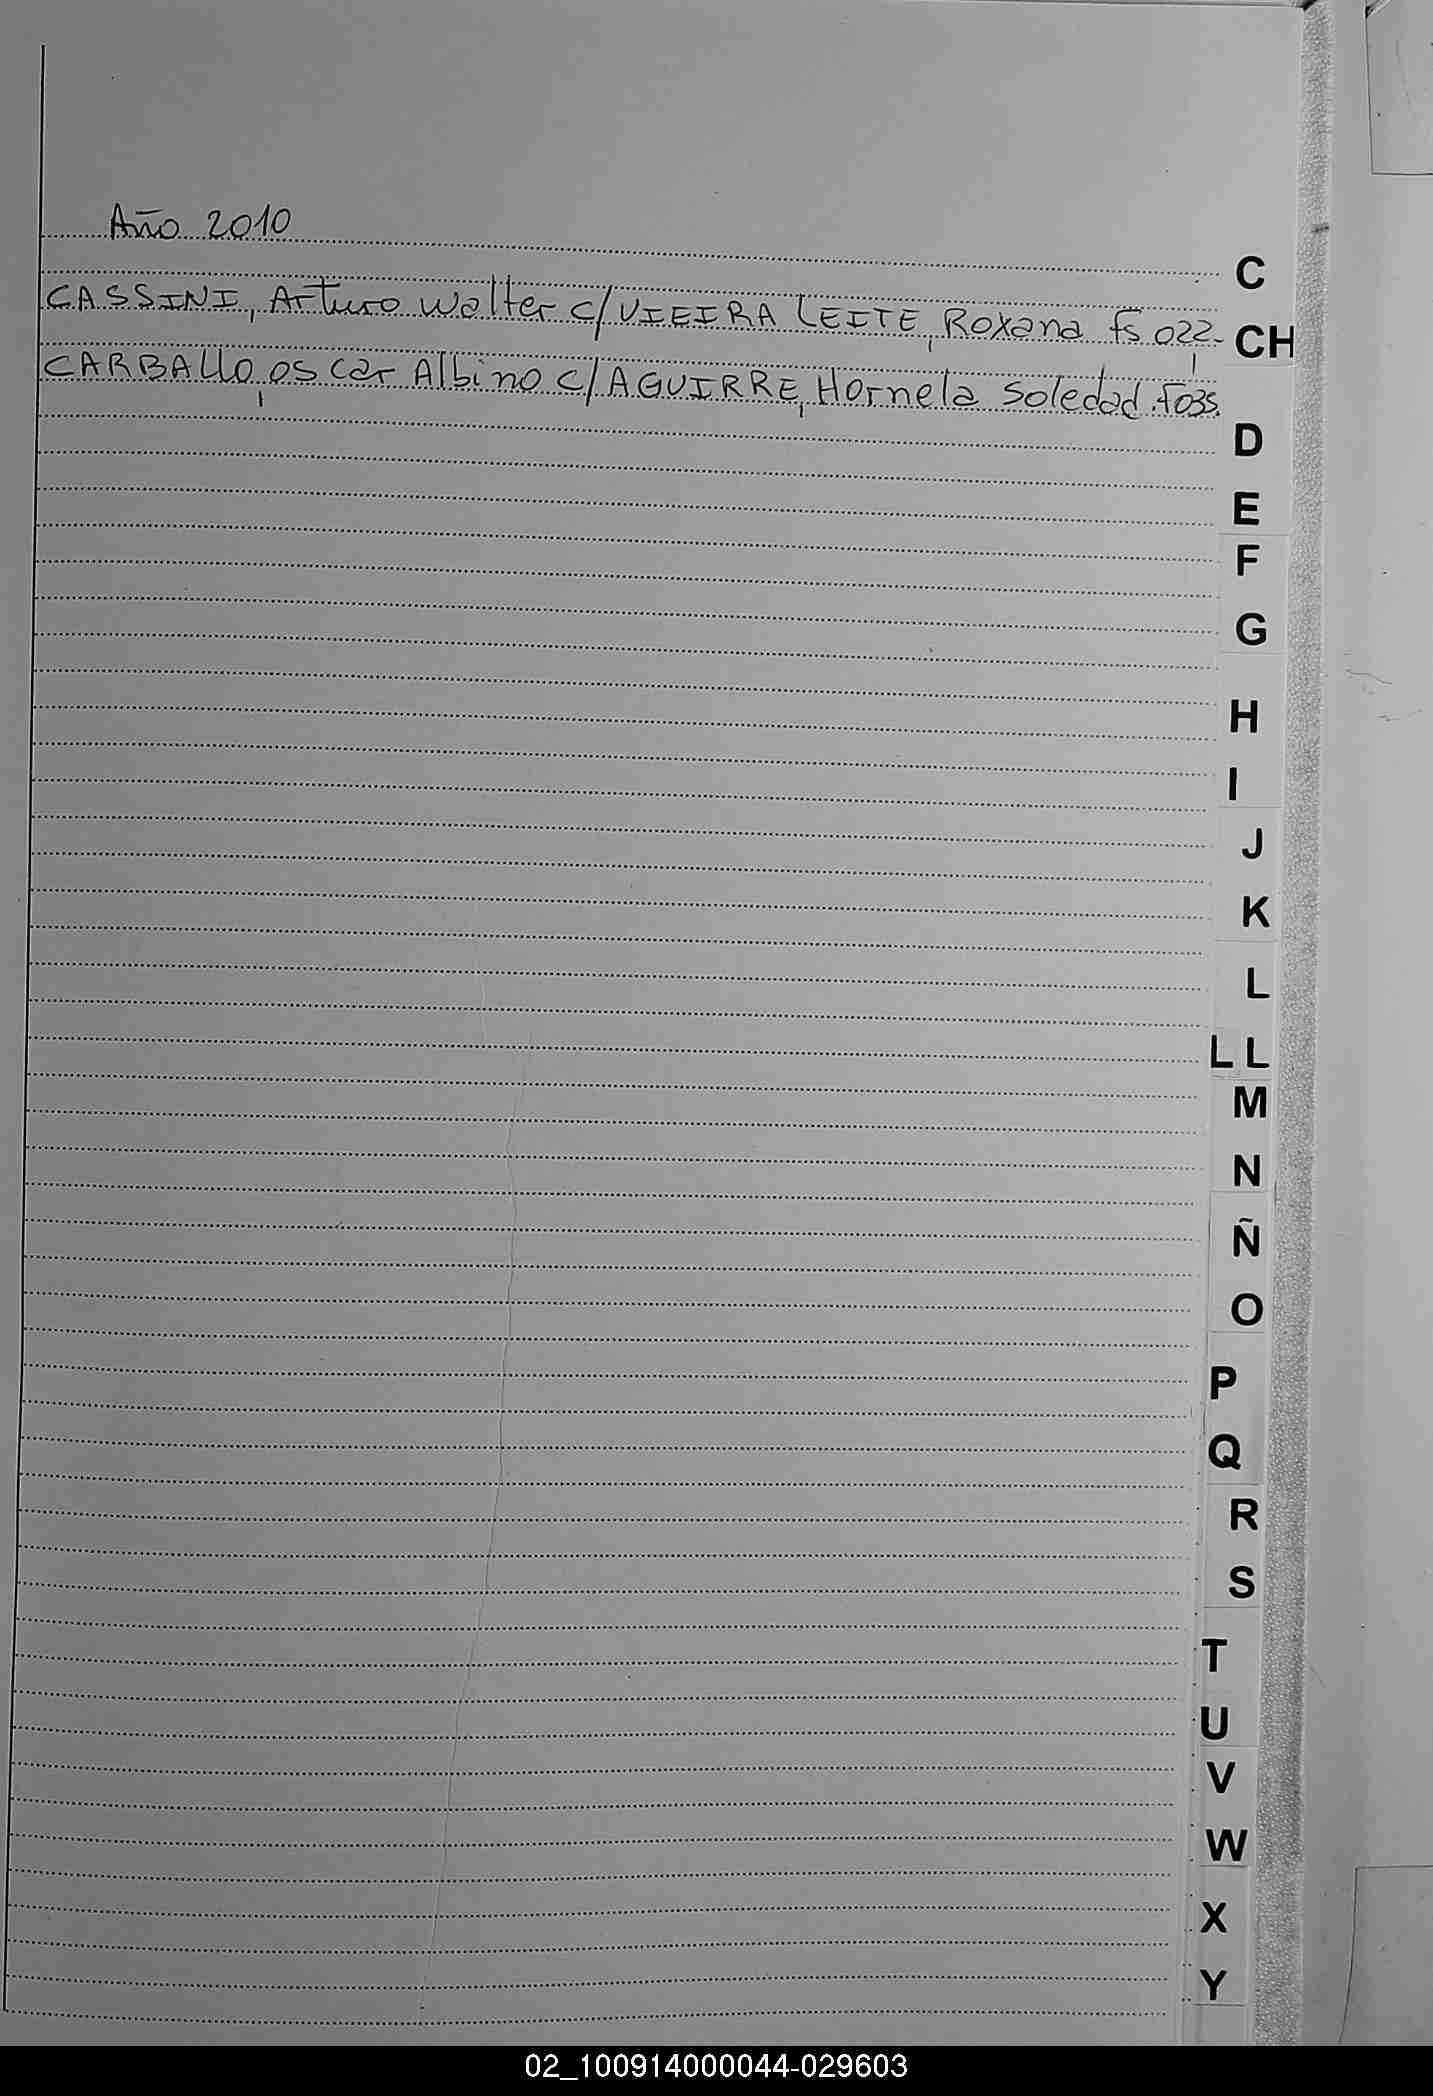 Año 2010
CASSINI, Arturo Walter c/VIEIRA LEITE, Roxana fs 022-
CARBALLO, Oscar Albino c/AGUIRRE, Hornela Soledad. F035.
C
CH
D
E
F
G
H
I
J
K
L
LL
M
N
Ñ
O
P
Q
R
S
T
U
V
W
X
Y
02_100914000044-029603